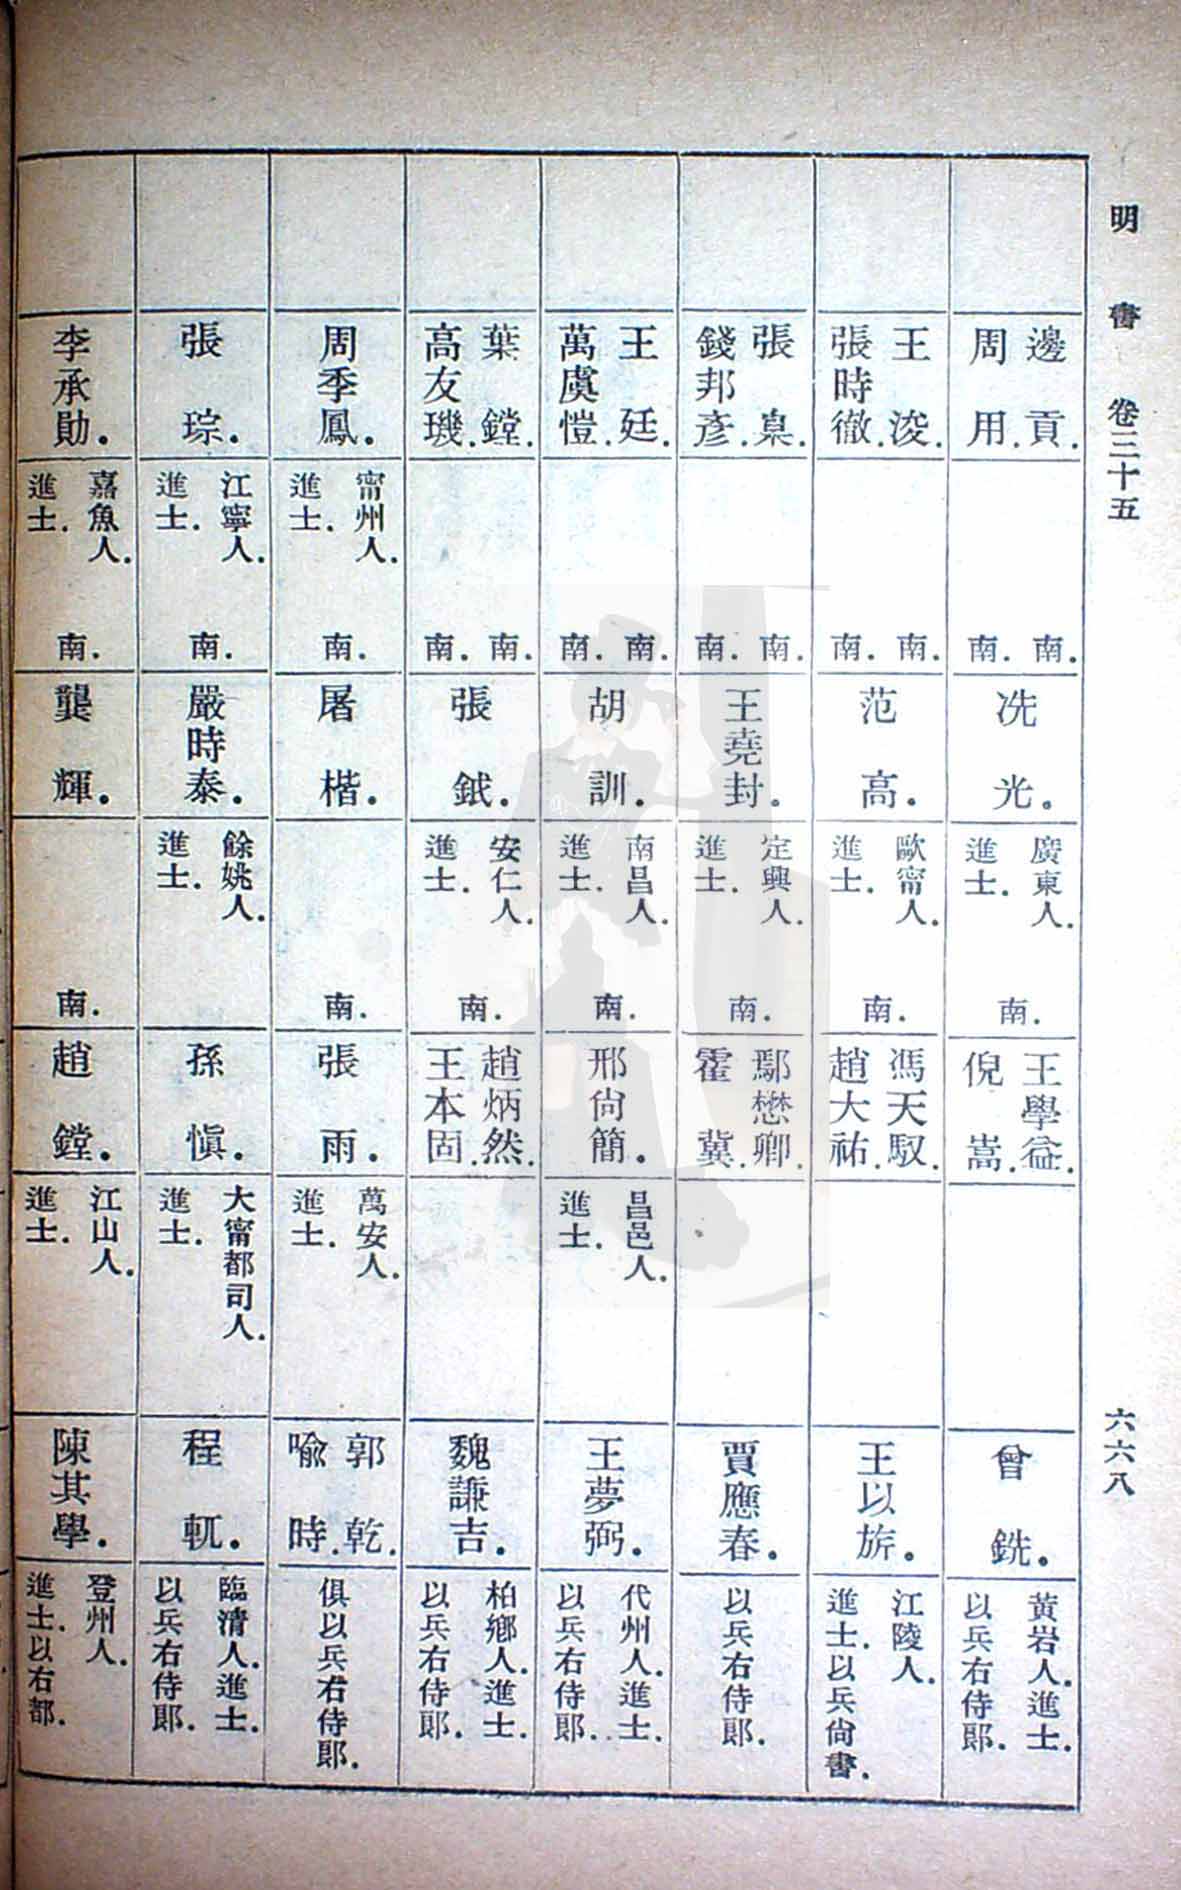 明書 卷三十五
六六八
邊貢.
周用.
南.
南.
冼光.
廣東人.
進士.
南.
王學益.
倪嵩.
曾銑.
黃岩人.進士.
以兵右侍郎.
王浚.
張時徹.
南.
南.
范高.
歐甯人.
進士.
南.
馮天馭.
趙大祐.
王以旂.
江陵人.
進士.以兵尙書.
張臬.
錢邦彥.
南.
南.
王堯封.
定興人.
進士.
南.
鄢懋卿.
霍冀.
賈應春.
以兵右侍郎.
王廷.
萬虞愷.
南.
南.
胡訓.
南昌人.
進士.
南.
邢尙簡.
昌邑人.
進士.
王夢弼.
代州人.進士.
以兵右侍郎.
葉鏜.
高友璣.
南.
南.
張鉞.
安仁人.
進士.
南.
趙炳然.
王本固.
魏謙吉.
柏鄉人.進士.
以兵右侍郎.
周季鳳.
甯州人.
進士.
南.
屠楷.
南.
張雨.
萬安人.
進士.
郭乾.
喩時.
俱以兵右侍郎.
張琮.
江寧人.
進士.
南.
嚴時泰.
餘姚人.
進士.
孫愼.
大甯都司人.
進士.
程軏.
臨清人.進士.
以兵右侍郎.
李承勛.
嘉魚人.
進士.
南.
龔輝.
南.
趙鏜.
江山人.
進士.
陳其學.
登州人.
進士.以右都.